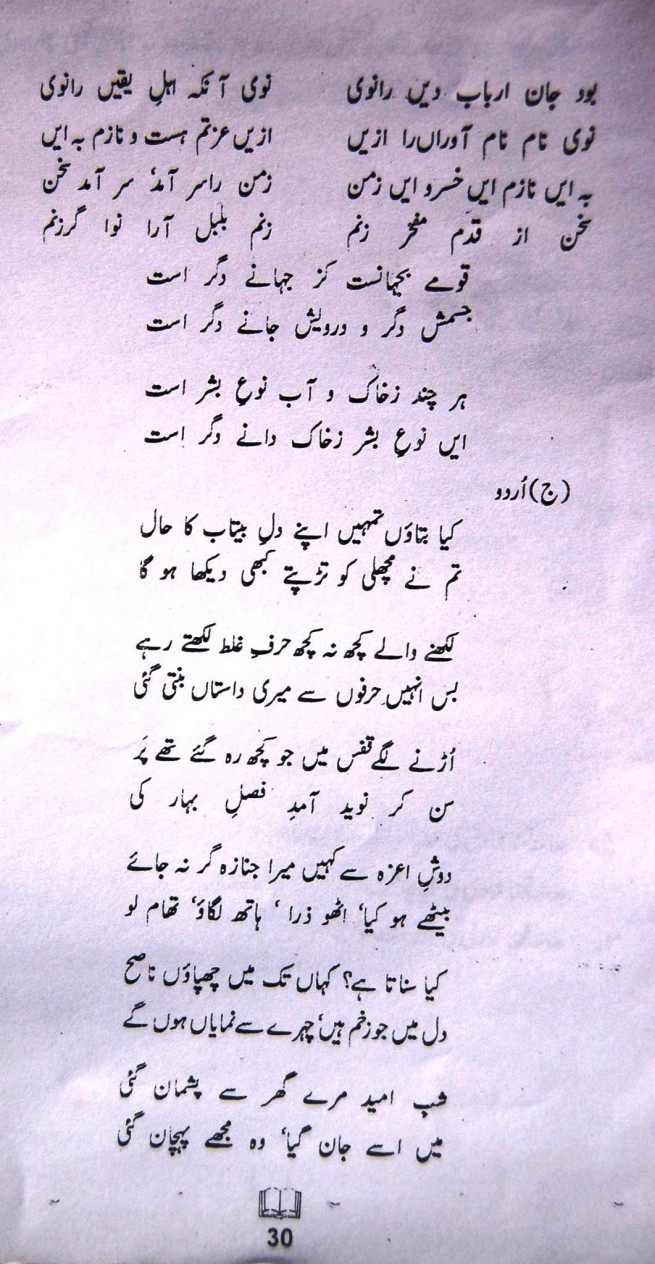 بود جان ارباب دیں رانوی نوی آنکہ اہلِ یقیں رانوی
نوی نام نام آوراں را ازیں ازیں عزتم ہست و نازم بہ ایں
بہ ایں نازم ایں خسرو ایں زمن زمن راسر آمد، سر آمد سخن
سخن از قدم مفخر زنم زنم بلبل آرا نوا گرزنم
قومے بجہانست کز جہانے دگر است
جسمش دگر و درویش جانے دگر است
ہر چند زخاک و آب نوعِ بشر است
ایں نوعِ بشر زخاک دانے دگر است
(ج) اُردو
کیا بتاؤں تمہیں اپنے دلِ بیتاب کا حال
تم نے مچھلی کو تڑپتے کبھی دیکھا ہو گا
لکھنے والے کچھ نہ کچھ حرفِ غلط لکھتے رہے
بس انہیں حرفوں سے میری داستاں بنتی گئی
اُڑنے لگے قفس میں جو کچھ رہ گئے تھے پَر
سن کر نوید آمدِ فصلِ بہار کی
دوشِ اعزہ سے کہیں میرا جنازہ گر نہ جائے
بیٹھے ہو کیا، اٹھو ذرا، ہاتھ لگاؤ، تھام لو
کیا سناتا ہے؟ کہاں تک میں چھپاؤں ناصح
دل میں جو زخم ہیں، چہرے سے نمایاں ہوں گے
شبِ امید مرے گھر سے پشمان گئی
میں اسے جان گیا، وہ مجھے پہچان گئی
30